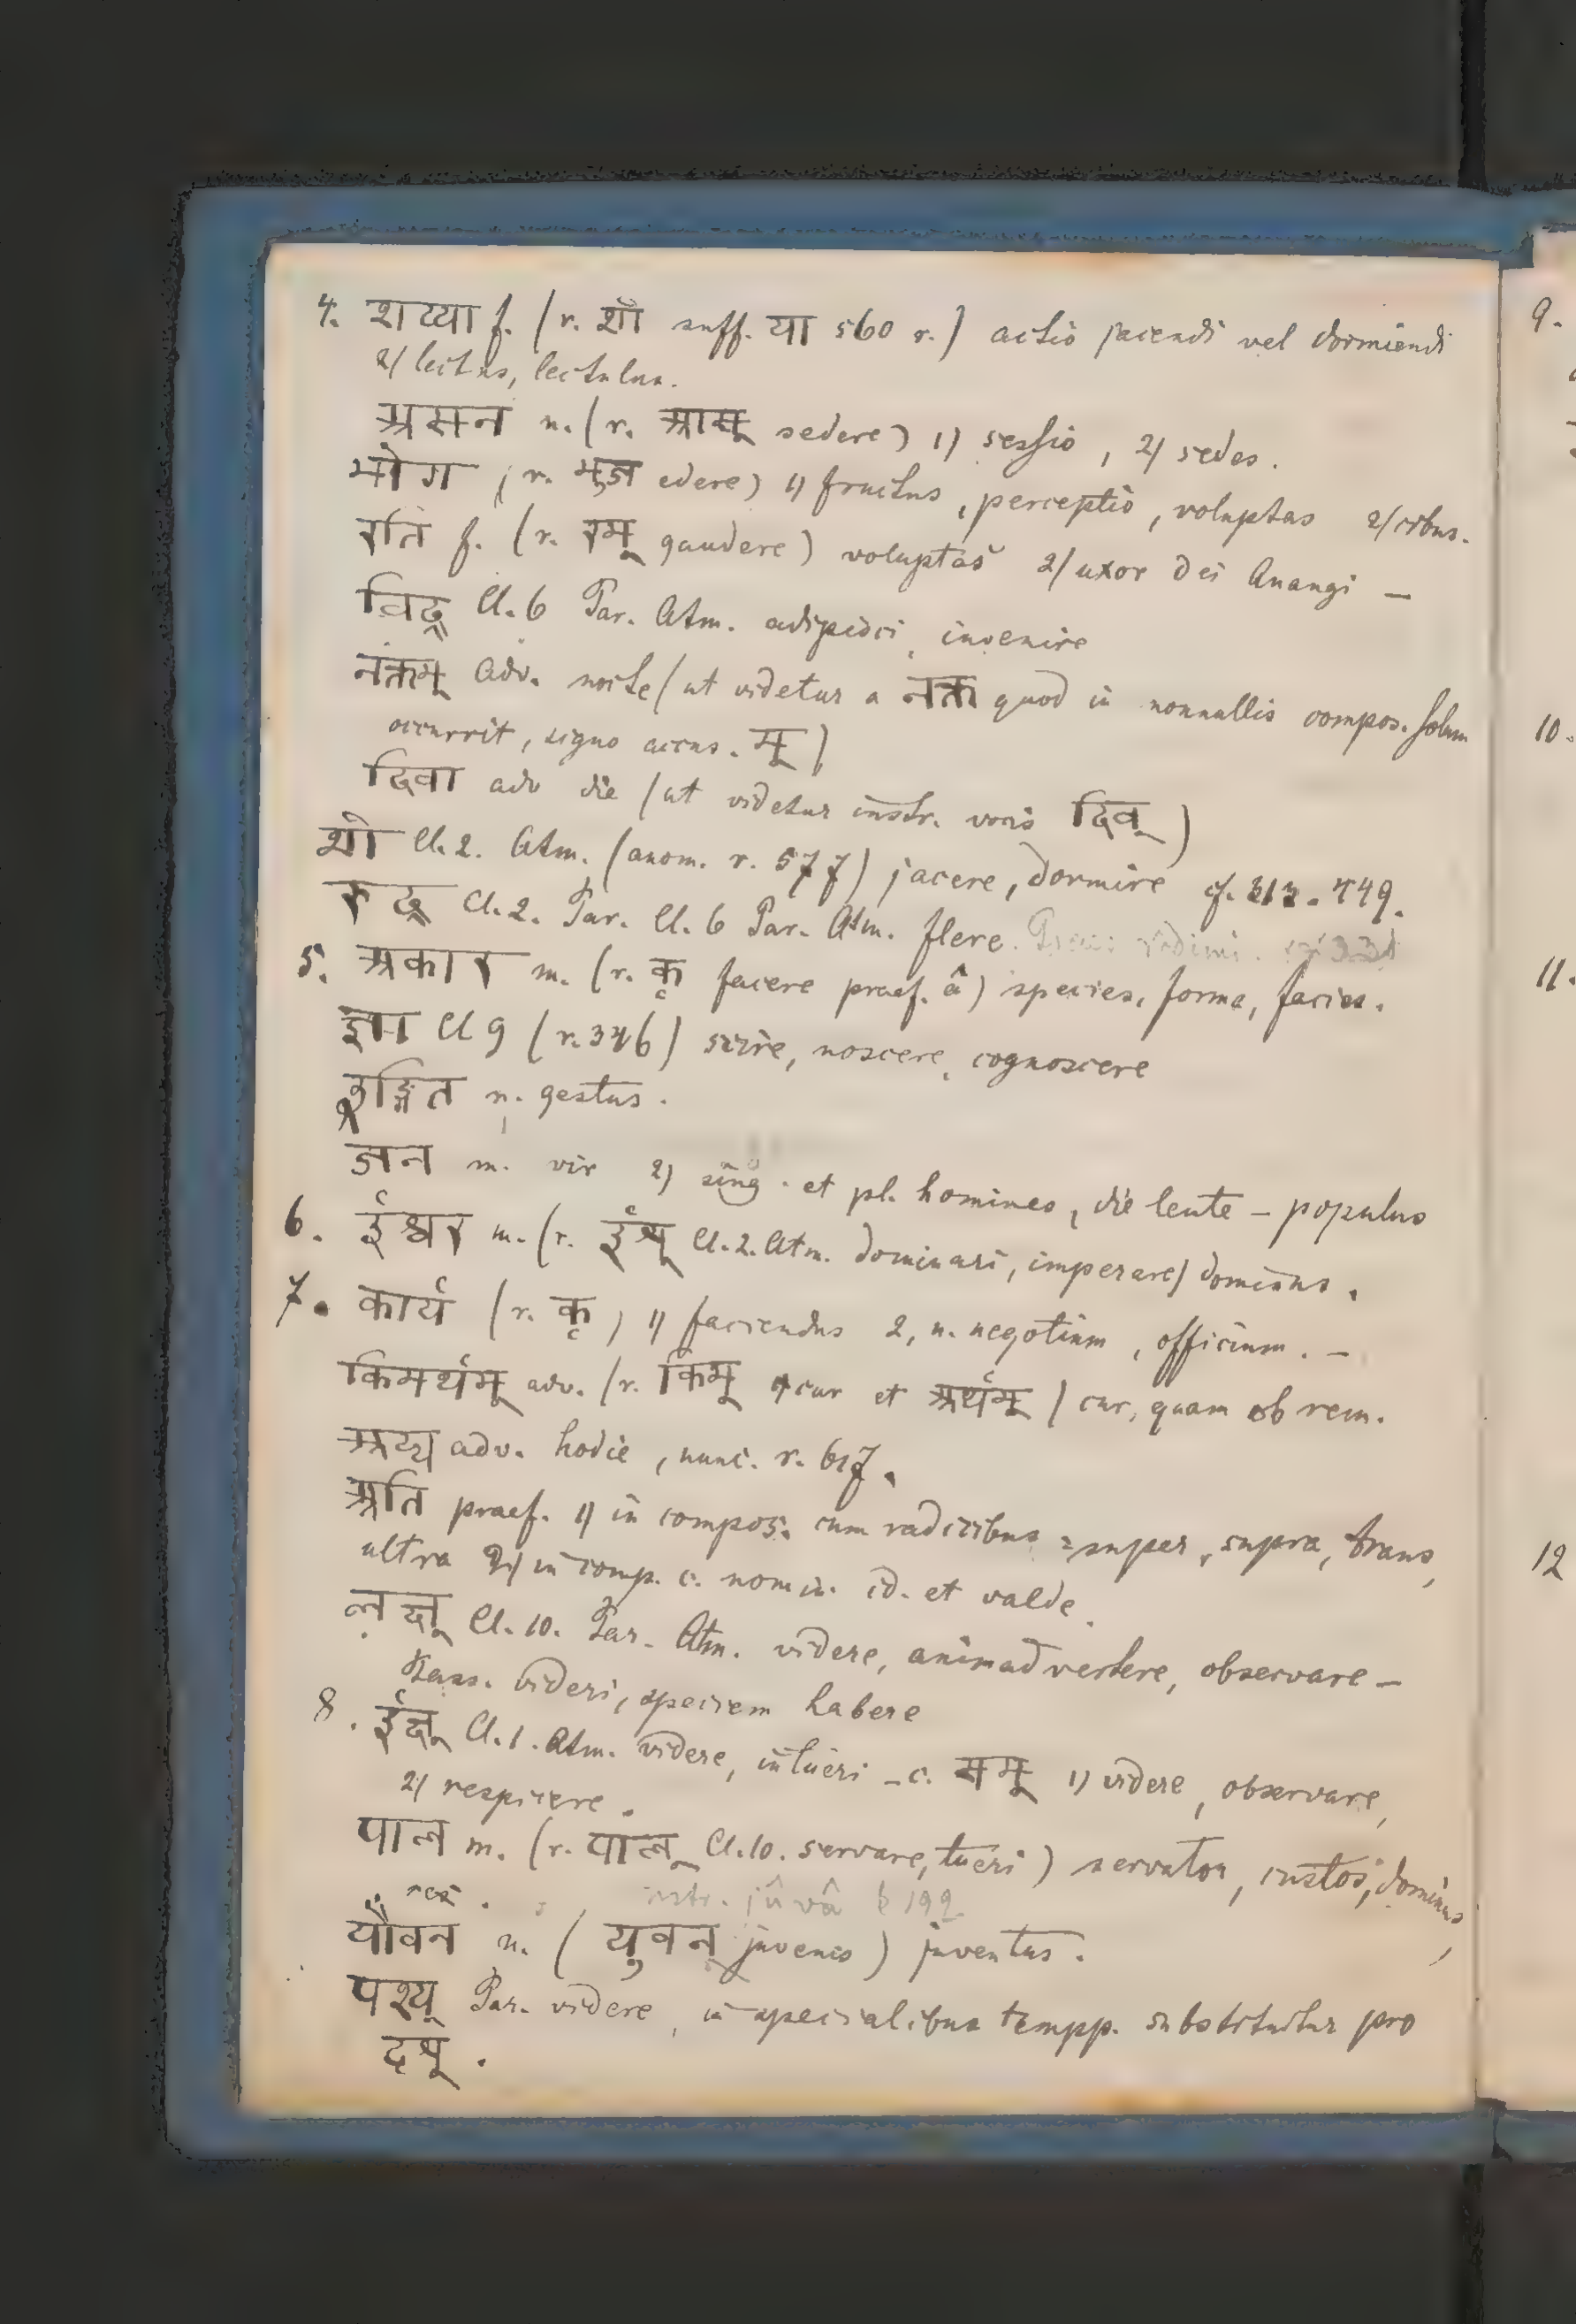 4. शय्या f. (r. शी suff. या 560 r.) actio jacendi vel dormiendi
2/ lectus, lectulus.
असन n. (r. आस् sedere) 1) sessio, 2/ sedes.
भोग (r. भुज edere) 1) fructus, perceptio, voluptas 2/ cibus.
रति f. (r. रम् gaudere) voluptas 2/ uxor dei Anangi —
विद् Cl. 6 Par. Atm. adipisci, invenire
नक्तम् adv. nocte (ut videtur a नक्त quod in nonnullis compos. solum
occurrit, signo accus. म्)
दिवा adv die (ut videtur instr. vocis दिव्)
शी Cl. 2. Atm. (anom. r. 577) jacere, dormire cf. 312. 449.
रुद् Cl. 2. Par. Cl. 6 Par. Atm. flere.
5. अकार m. (r. कृ facere praef. â) species, forma, facies.
ज्ञा Cl 9 (r. 346) scire, noscere, cognoscere
इङ्गित n. gestus.
जन m. vir 2) sing. et pl. homines, die leute – populus
6. ईश्वर m. (r. ईश् Cl. 2. Atm. dominari, imperare) dominus.
7. कार्य (r. कृ) 1) faciendus 2, n. negotium, officium. –
किमर्थम् adv. (r. किम् cur et अर्थम्) cur, quam ob rem.
अद्य adv. hodie, nunc. r. 617.
अति praef. 1) in compos. cum radicibus = super, supra, trans,
ultra 2) in comp. c. nomin. id. et valde.
लक्ष् Cl. 10. Par. Atm. videre, animadvertere, observare –
Pass. videri, speciem habere
8. ईक्ष् Cl. 1. Atm. videre, intueri – c. सम् 1) videre, observare,
2) respicere.
पाल m. (r. पाल् Cl. 10. servare, tueri) servator, custos, dominus,
rex. instr. jûvâ 192
यौवन n. (युवन् juvenis) juventus.
पश्य् Par. videre, in specialibus tempp. substituitur pro
दृश्.
9.
10.
11.
12